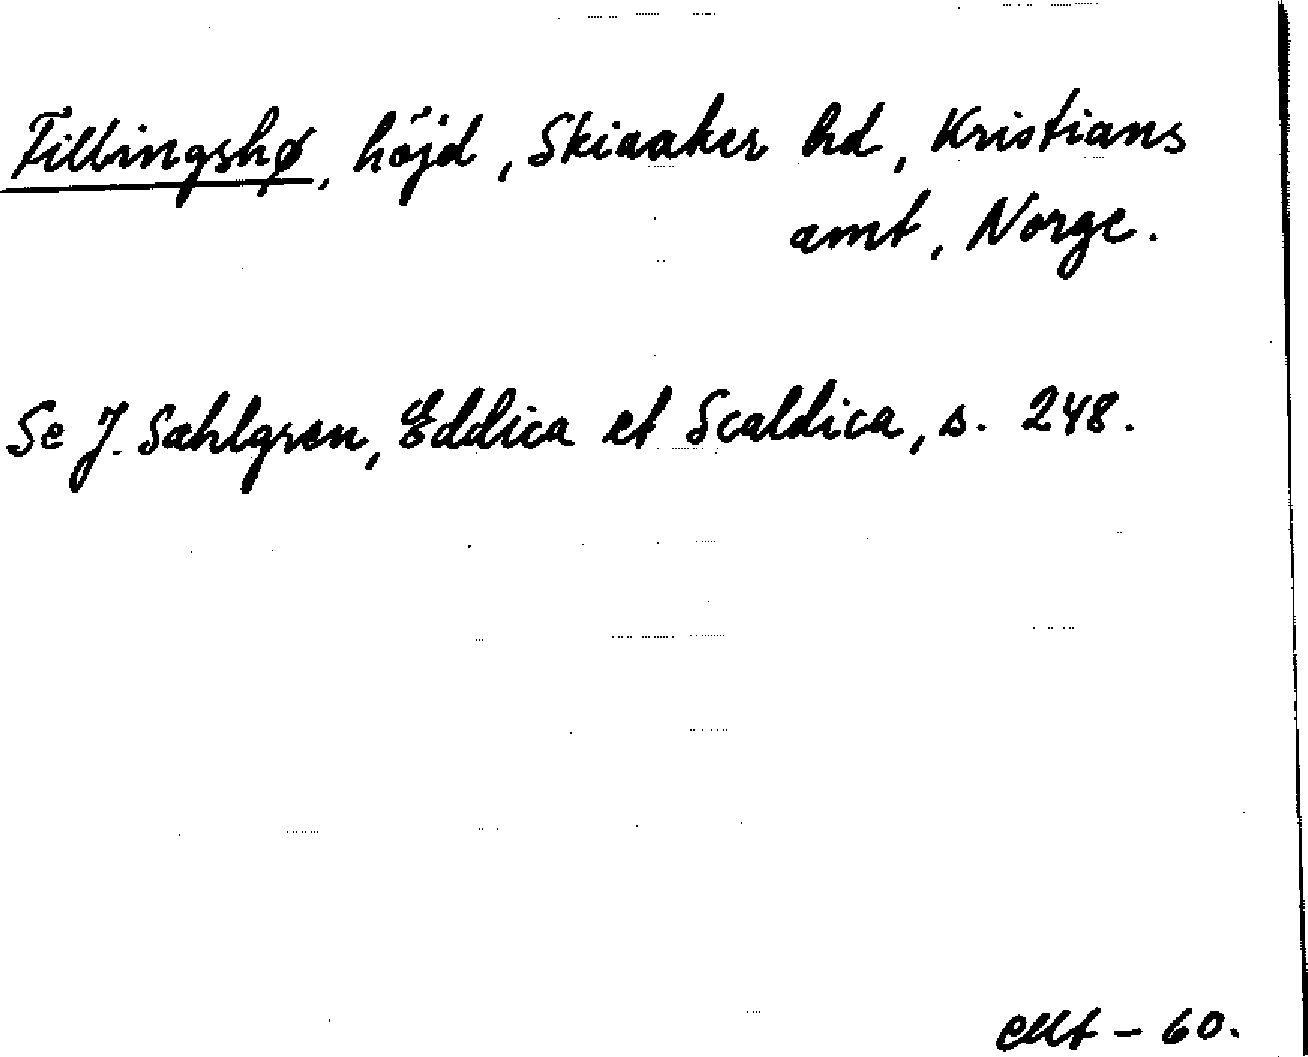 Fillingshø, höjd, Skiaaker hd, Kristians
amt, Norge.
Se J. Sahlgren, Eddica et Scaldica, s. 248.
- 60.